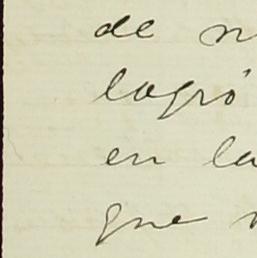 de
logró
en la
que